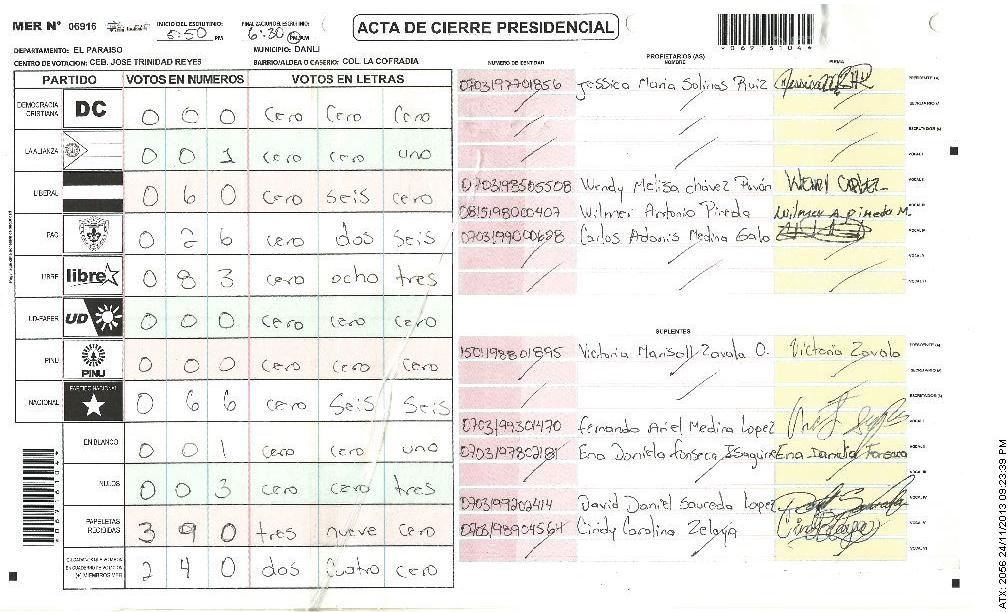 MER N° 06916
INICIO DEL ESCRUTINIO: 5:50 PM
FINALIZACION DEL ESCRUTINIO: 6:30 PM AM
ACTA DE CIERRE PRESIDENCIAL
DEPARTAMENTO: EL PARAISO
MUNICIPIO: DANLI
CENTRO DE VOTACION: CEB. JOSE TRINIDAD REYES
BARRIO/ALDEA O CASERIO: COL. LA COFRADIA
PARTIDO VOTOS EN NUMEROS VOTOS EN LETRAS
DEMOCRACIA CRISTIANA DC 0 0 0 Cero Cero Cero
LA ALIANZA 0 0 1 cero cero uno
LIBERAL 0 6 0 cero seis cero
PAC 0 2 6 cero dos seis
LIBRE libre 0 8 3 cero ocho tres
UD-FAPER UD 0 0 0 cero cero cero
PINU PINU 0 0 0 cero cero cero
NACIONAL PARTIDO NACIONAL 0 6 6 cero seis seis
EN BLANCO 0 0 1 cero cero uno
NULOS 0 0 3 cero cero tres
PAPELETAS RECIBIDAS 3 9 0 tres nueve cero
(+) MIEMBROS MER 2 4 0 dos cuatro cero
PROPIETARIOS (AS)
NUMERO DE IDENTIDAD NOMBRE FIRMA
0703197701856 Jessica Maria Salinas Ruiz PRESIDENTE (A)
SECRETARIO (A)
ESCRUTADOR (A)
VOCAL I
0703198505508 Wendy Melisa chavez Pavón VOCAL II
0815198000407 Wilmer Antonio Pineda Wilmer A pinedo M. VOCAL III
0703199000628 Carlos Adonis Medina Galo VOCAL IV
VOCAL V
VOCAL VI
SUPLENTES
1501198801895 Victoria Marisoll Zavala O. Victoria Zavala PRESIDENTE (A)
SECRETARIO (A)
ESCRUTADOR (A)
0703199301470 Fernando Ariel Medina Lopez VOCAL I
0703197802181 Ena Daniela Fonseca Isaguirre Ena Daniela Fonseca VOCAL II
VOCAL III
0703199202414 David Daniel Sauceda Lopez VOCAL IV
0703198904564 Cindy Carolina Zelaya VOCAL V
VOCAL VI
ATX: 2056 24/11/2013 09:23:39 PM